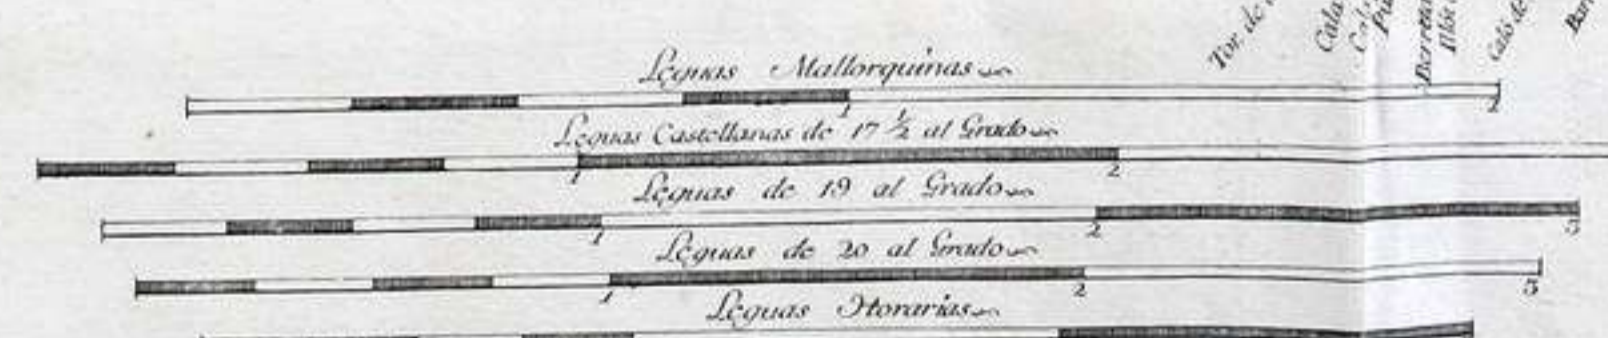 Tor. de
Cala
Leguas Mallorquinas
1 2
Leguas Castellanas de 17 ½ al Grado
1 2
Leguas de 19 al Grado
1 2 3
Leguas de 20 al Grado
1 2 3
Leguas Horarias